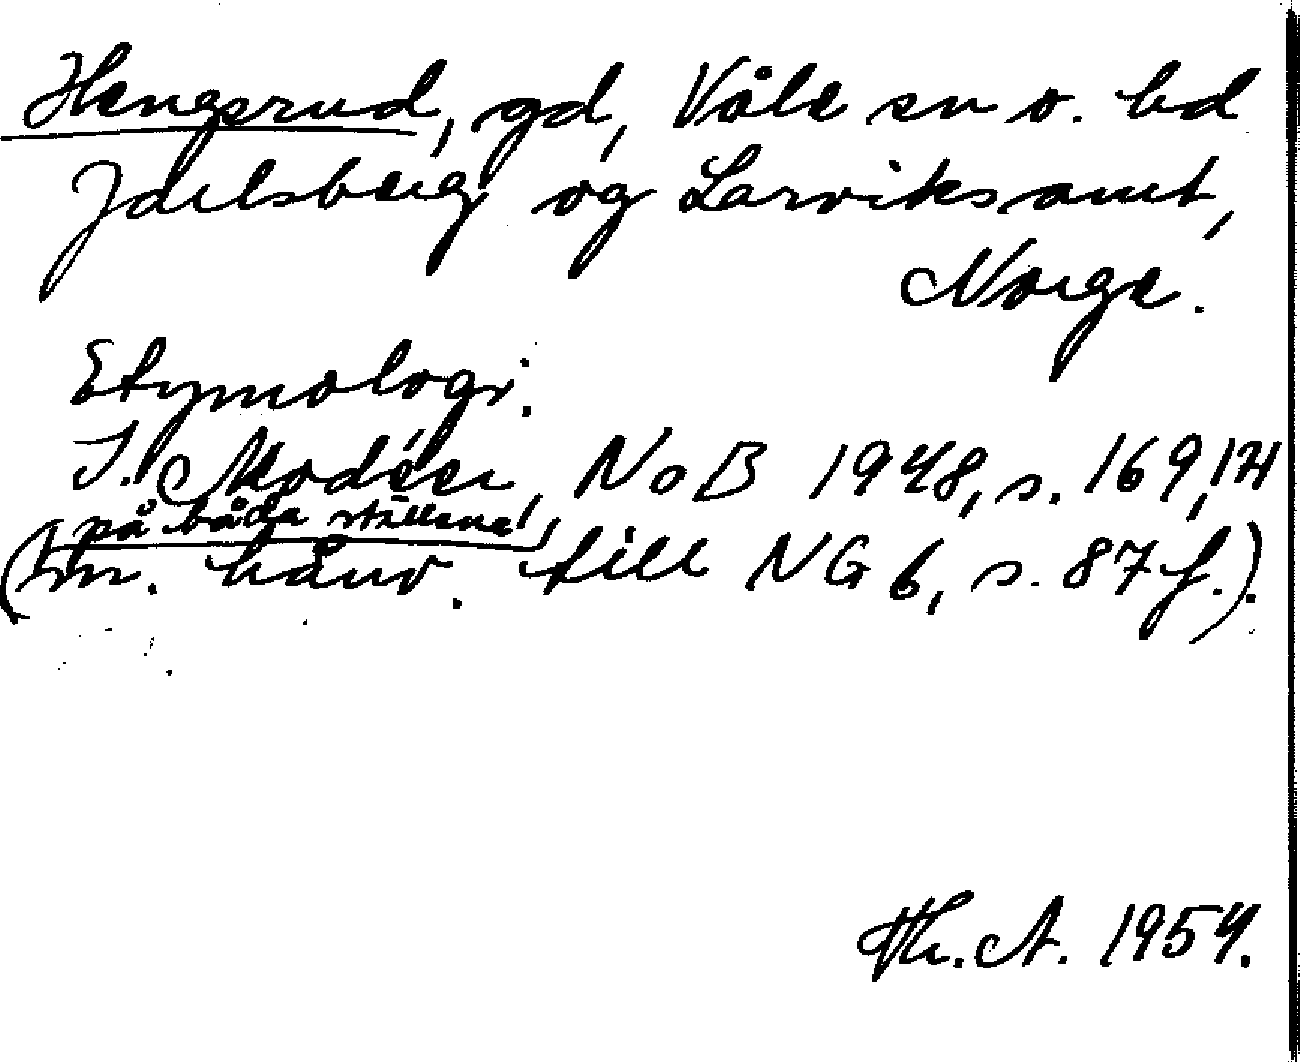 Hengsrud, gd, Våle sn o. hd
Jarlsberg og Larviksamt,
Norge.
Etymologi:
I. Modéer, NoB 1948, s. 169, 174
på båda ställena
(m. hänv. till NG 6, s. 87 f.).
Th. A. 1954.